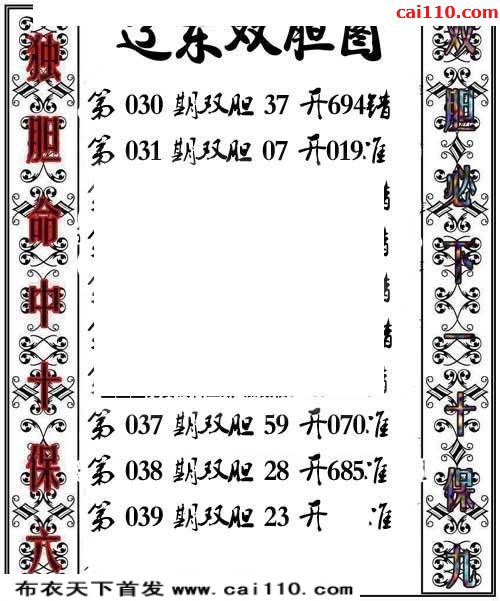 cai110.com
辽东双胆图
第 030 期双胆 37 开694错
第 031 期双胆 07 开019准
第 037 期双胆 59 开070准
第 038 期双胆 28 开685准
第 039 期双胆 23 开 准
独胆命中十保六
双胆必下一十保九
布衣天下首发 www.cai110.com